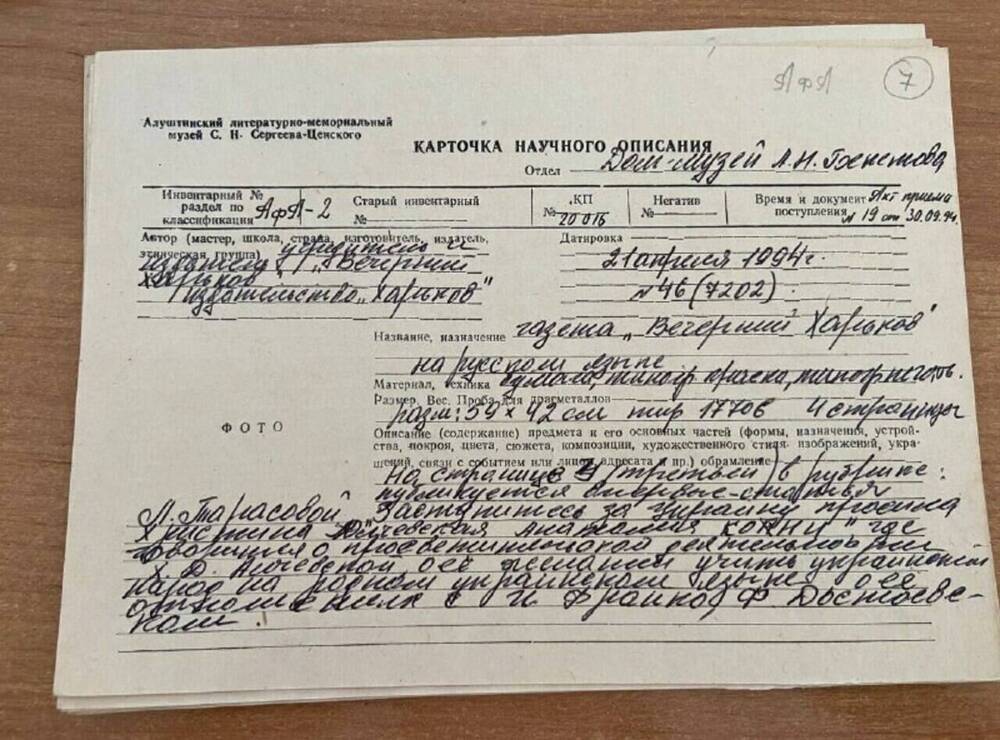 АфА
7
Алуштинский литературно-мемориальный
музей С. Н. Сергеева-Ценского
КАРТОЧКА НАУЧНОГО ОПИСАНИЯ
Отдел Дом-музей А.Н. Бекетова
Инвентарный № раздел по классификации АфА-2
Старый инвентарный №
КП № 20016
Негатив №
Время и документ поступления Акт приема № 19 от 30.09.94.
Автор (мастер, школа, страна, изготовитель, издатель,
этническая группа) учредитель и
издатель „Вечерний
Харьков
издательство „Харьков"
Датировка
21 апреля 1994 г.
№ 46 (7202)
Название, назначение газета „Вечерний Харьков"
на русском языке
Материал, техника бумага, типогр краска, типогр
Размер. Вес. Проба для драгметаллов
разм: 59 х 42 см тир 17706 4 страницы
ФОТО
Описание (содержание) предмета и его основных частей (формы, назначения, устрой-
ства, покроя, цвета, сюжета, композиции, художественного стиля изображений, укра-
шений, связи с событием или лицом, адресата и пр.) обрамление
На странице 3 (третьей) в рубрике:
публикуется впервые - статья
Л. Тарасовой „Заступитесь за Украину просила
Христина Алчевская Анатомия корни" где
говорится о просветительской деятельности
Х.Д. Алчевской о её желании учить украинский
народ на родном украинском языке о ее
отношениях с И Франко Ф Достоевс-
ким.